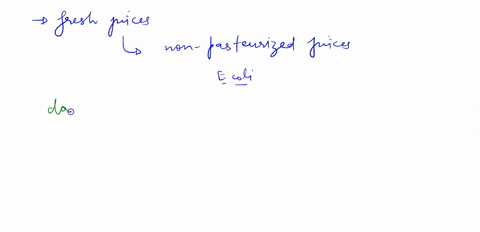 → fresh juices
↳ non-pasteurized juices
E coli
da